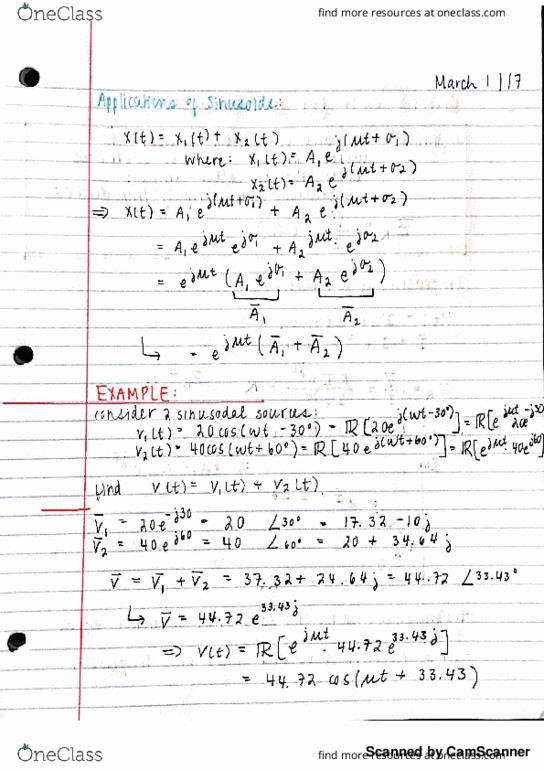 OneClass
find more resources at oneclass.com
March 1/17
Applications of Sinusoids:
x(t) = x₁(t) + x₂(t)
where: x₁(t) = A₁ e^j(ωt + σ₁)
x₂(t) = A₂ e^j(ωt + σ₂)
⇒ x(t) = A₁ e^j(ωt+σ₁) + A₂ e^j(ωt+σ₂)
= A₁ e^jωt e^jσ₁ + A₂ e^jωt e^jσ₂
= e^jωt (A₁ e^jσ₁ + A₂ e^jσ₂)
Ā₁ Ā₂
↳ = e^jωt (Ā₁ + Ā₂)
EXAMPLE:
consider 2 sinusodal sources:
v₁(t) = 20cos(ωt - 30°) = ℝ[20e^j(ωt-30°)] = ℝ[e^jωt 20e^-j30
v₂(t) = 40cos(ωt + 60°) = ℝ[40e^j(ωt+60°)] = ℝ[e^jωt · 40e^j60]
find v(t) = v₁(t) + v₂(t)
V̄₁ = 20e^-j30 = 20 ∠30° = 17.32 - 10j
V̄₂ = 40e^j60 = 40 ∠60° = 20 + 34.64j
V̄ = V̄₁ + V̄₂ = 37.32 + 24.64j = 44.72 ∠33.43°
↳ V̄ = 44.72 e^33.43j
⇒ v(t) = ℝ[e^jωt · 44.72e^33.43j]
= 44.72 cos(ωt + 33.43)
OneClass
find more resources at oneclass.com
Scanned by CamScanner